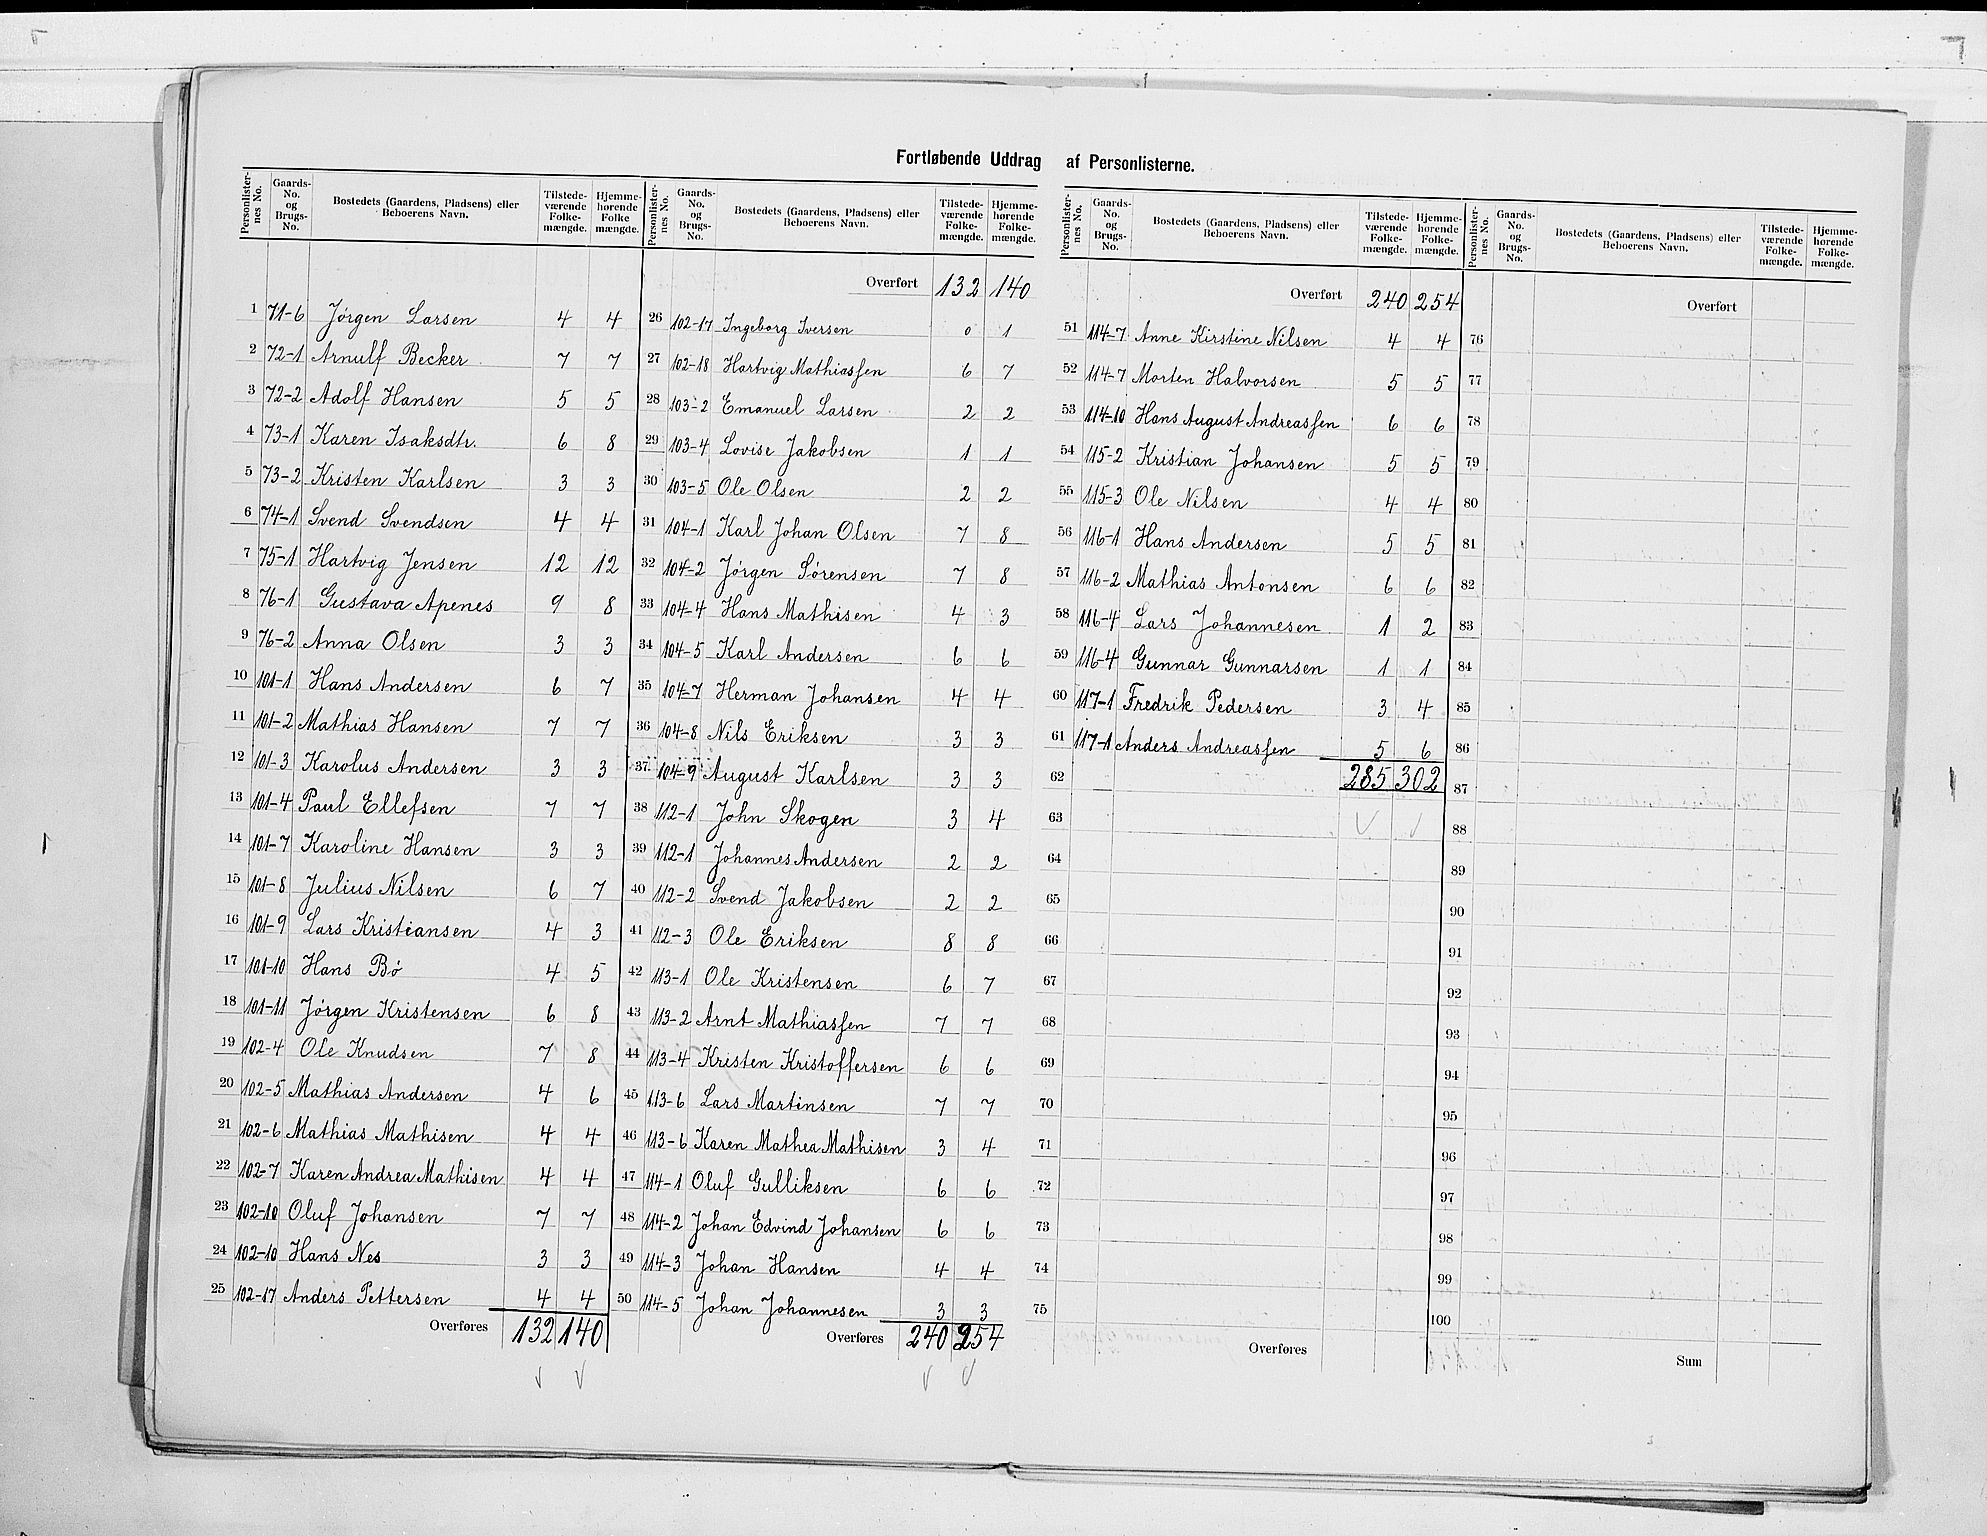 Fortløbende Uddrag af Personlisterne.
Personlister-nes No. | Gaards-No. og Brugs-No. | Bostedets (Gaardens, Pladsens) eller Beboerens Navn. | Tilstede-værende Folke-mængde. | Hjemme-hørende Folke mængde.
1 71-6 Jørgen Larsen 4 4
2 72-1 Arnulf Becker 7 7
3 72-2 Adolf Hansen 5 5
4 73-1 Karen Isaksdtr. 6 8
5 73-2 Kristen Karlsen 3 3
6 74-1 Svend Svendsen 4 4
7 75-1 Hartvig Jensen 12 12
8 76-1 Gustava Apenes 9 8
9 76-2 Anna Olsen 3 3
10 101-1 Hans Andersen 6 7
11 101-2 Mathias Hansen 7 7
12 101-3 Karolus Andersen 3 3
13 101-4 Paul Ellefsen 7 7
14 101-7 Karoline Hansen 3 3
15 101-8 Julius Nilsen 6 7
16 101-9 Lars Kristiansen 4 3
17 101-10 Hans Bø 4 5
18 101-11 Jørgen Kristensen 6 8
19 102-4 Ole Knudsen 7 8
20 102-5 Mathias Andersen 4 6
21 102-6 Mathias Mathisen 4 4
22 102-7 Karen Andrea Mathisen 4 4
23 102-10 Oluf Johansen 7 7
24 102-10 Hans Nes 3 3
25 102-17 Anders Pettersen 4 4
Overføres 132 140
Personlister-nes No. | Gaards-No. og Brugs-No. | Bostedets (Gaardens, Pladsens) eller Beboerens Navn. | Tilstede-værende Folke-mængde. | Hjemme-hørende Folke-mængde.
Overført 132 140
26 102-17 Ingeborg Iversen 0 1
27 102-18 Hartvig Mathiassen 6 7
28 103-2 Emanuel Larsen 2 2
29 103-4 Lovise Jakobsen 1 1
30 103-5 Ole Olsen 2 2
31 104-1 Karl Johan Olsen 7 8
32 104-2 Jørgen Sørensen 7 8
33 104-4 Hans Mathisen 4 3
34 104-5 Karl Andersen 6 6
35 104-7 Herman Johansen 4 4
36 104-8 Nils Eriksen 3 3
37 104-9 August Karlsen 3 3
38 112-1 John Skogen 3 4
39 112-1 Johannes Andersen 2 2
40 112-2 Svend Jakobsen 2 2
41 112-3 Ole Eriksen 8 8
42 113-1 Ole Kristensen 6 7
43 113-2 Arnt Mathiassen 7 7
44 113-4 Kristen Kristoffersen 6 6
45 113-6 Lars Martinsen 7 7
46 113-6 Karen Mathea Mathisen 3 4
47 114-1 Oluf Gulliksen 6 6
48 114-2 Johan Edvind Johansen 6 6
49 114-3 Johan Hansen 4 4
50 114-5 Johan Johannesen 3 3
Overføres 240 254
Personlister-nes No. | Gaards-No. og Brugs-No. | Bostedets (Gaardens, Pladsens) eller Beboerens Navn. | Tilstede-værende Folke-mængde. | Hjemme-hørende Folke-mængde.
Overført 240 254
51 114-7 Anne Kirstine Nilsen 4 4
52 114-7 Morten Halvorsen 5 5
53 114-10 Hans August Andreassen 6 6
54 115-2 Kristian Johansen 5 5
55 115-3 Ole Nilsen 4 4
56 116-1 Hans Andersen 5 5
57 116-2 Mathias Antonsen 6 6
58 116-4 Lars Johannesen 1 2
59 116-4 Gunnar Gunnarsen 1 1
60 117-1 Fredrik Pedersen 3 4
61 117-1 Anders Andreassen 5 6
62 285 302
63
64
65
66
67
68
69
70
71
72
73
74
75
Overføres
Personlister-nes No. | Gaards-No. og Brugs-No. | Bostedets (Gaardens, Pladsens) eller Beboerens Navn. | Tilstede-værende Folke-mængde. | Hjemme-hørende Folke-mængde.
Overført
76
77
78
79
80
81
82
83
84
85
86
87
88
89
90
91
92
93
94
95
96
97
98
99
100
Sum